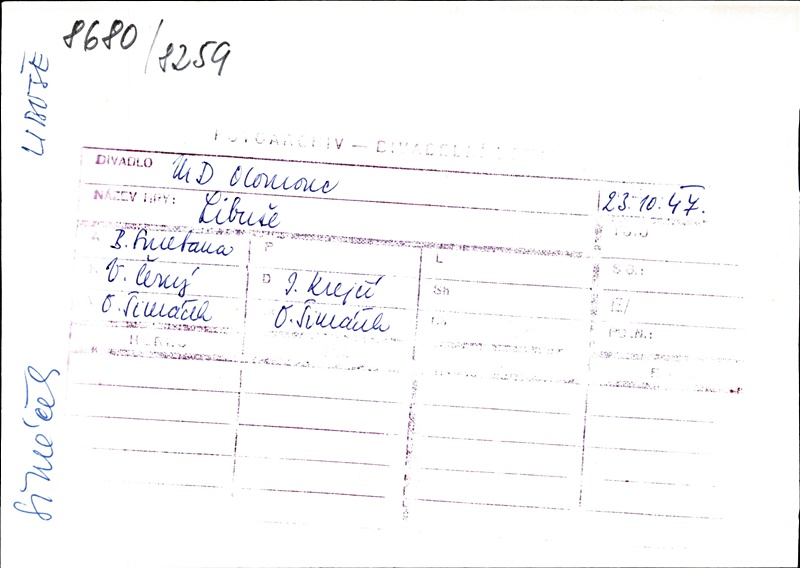 8680/8259
LIBUŠE
FOTOARCHIV — DIVADELNÍ
DIVADLO MD Olomouc 23.10.47.
NÁZEV HRY: Libuše
B. Smetana P L
V. Černý D J. Krejčí Sh
O. Šimáček O. Šimáček
Šimáček